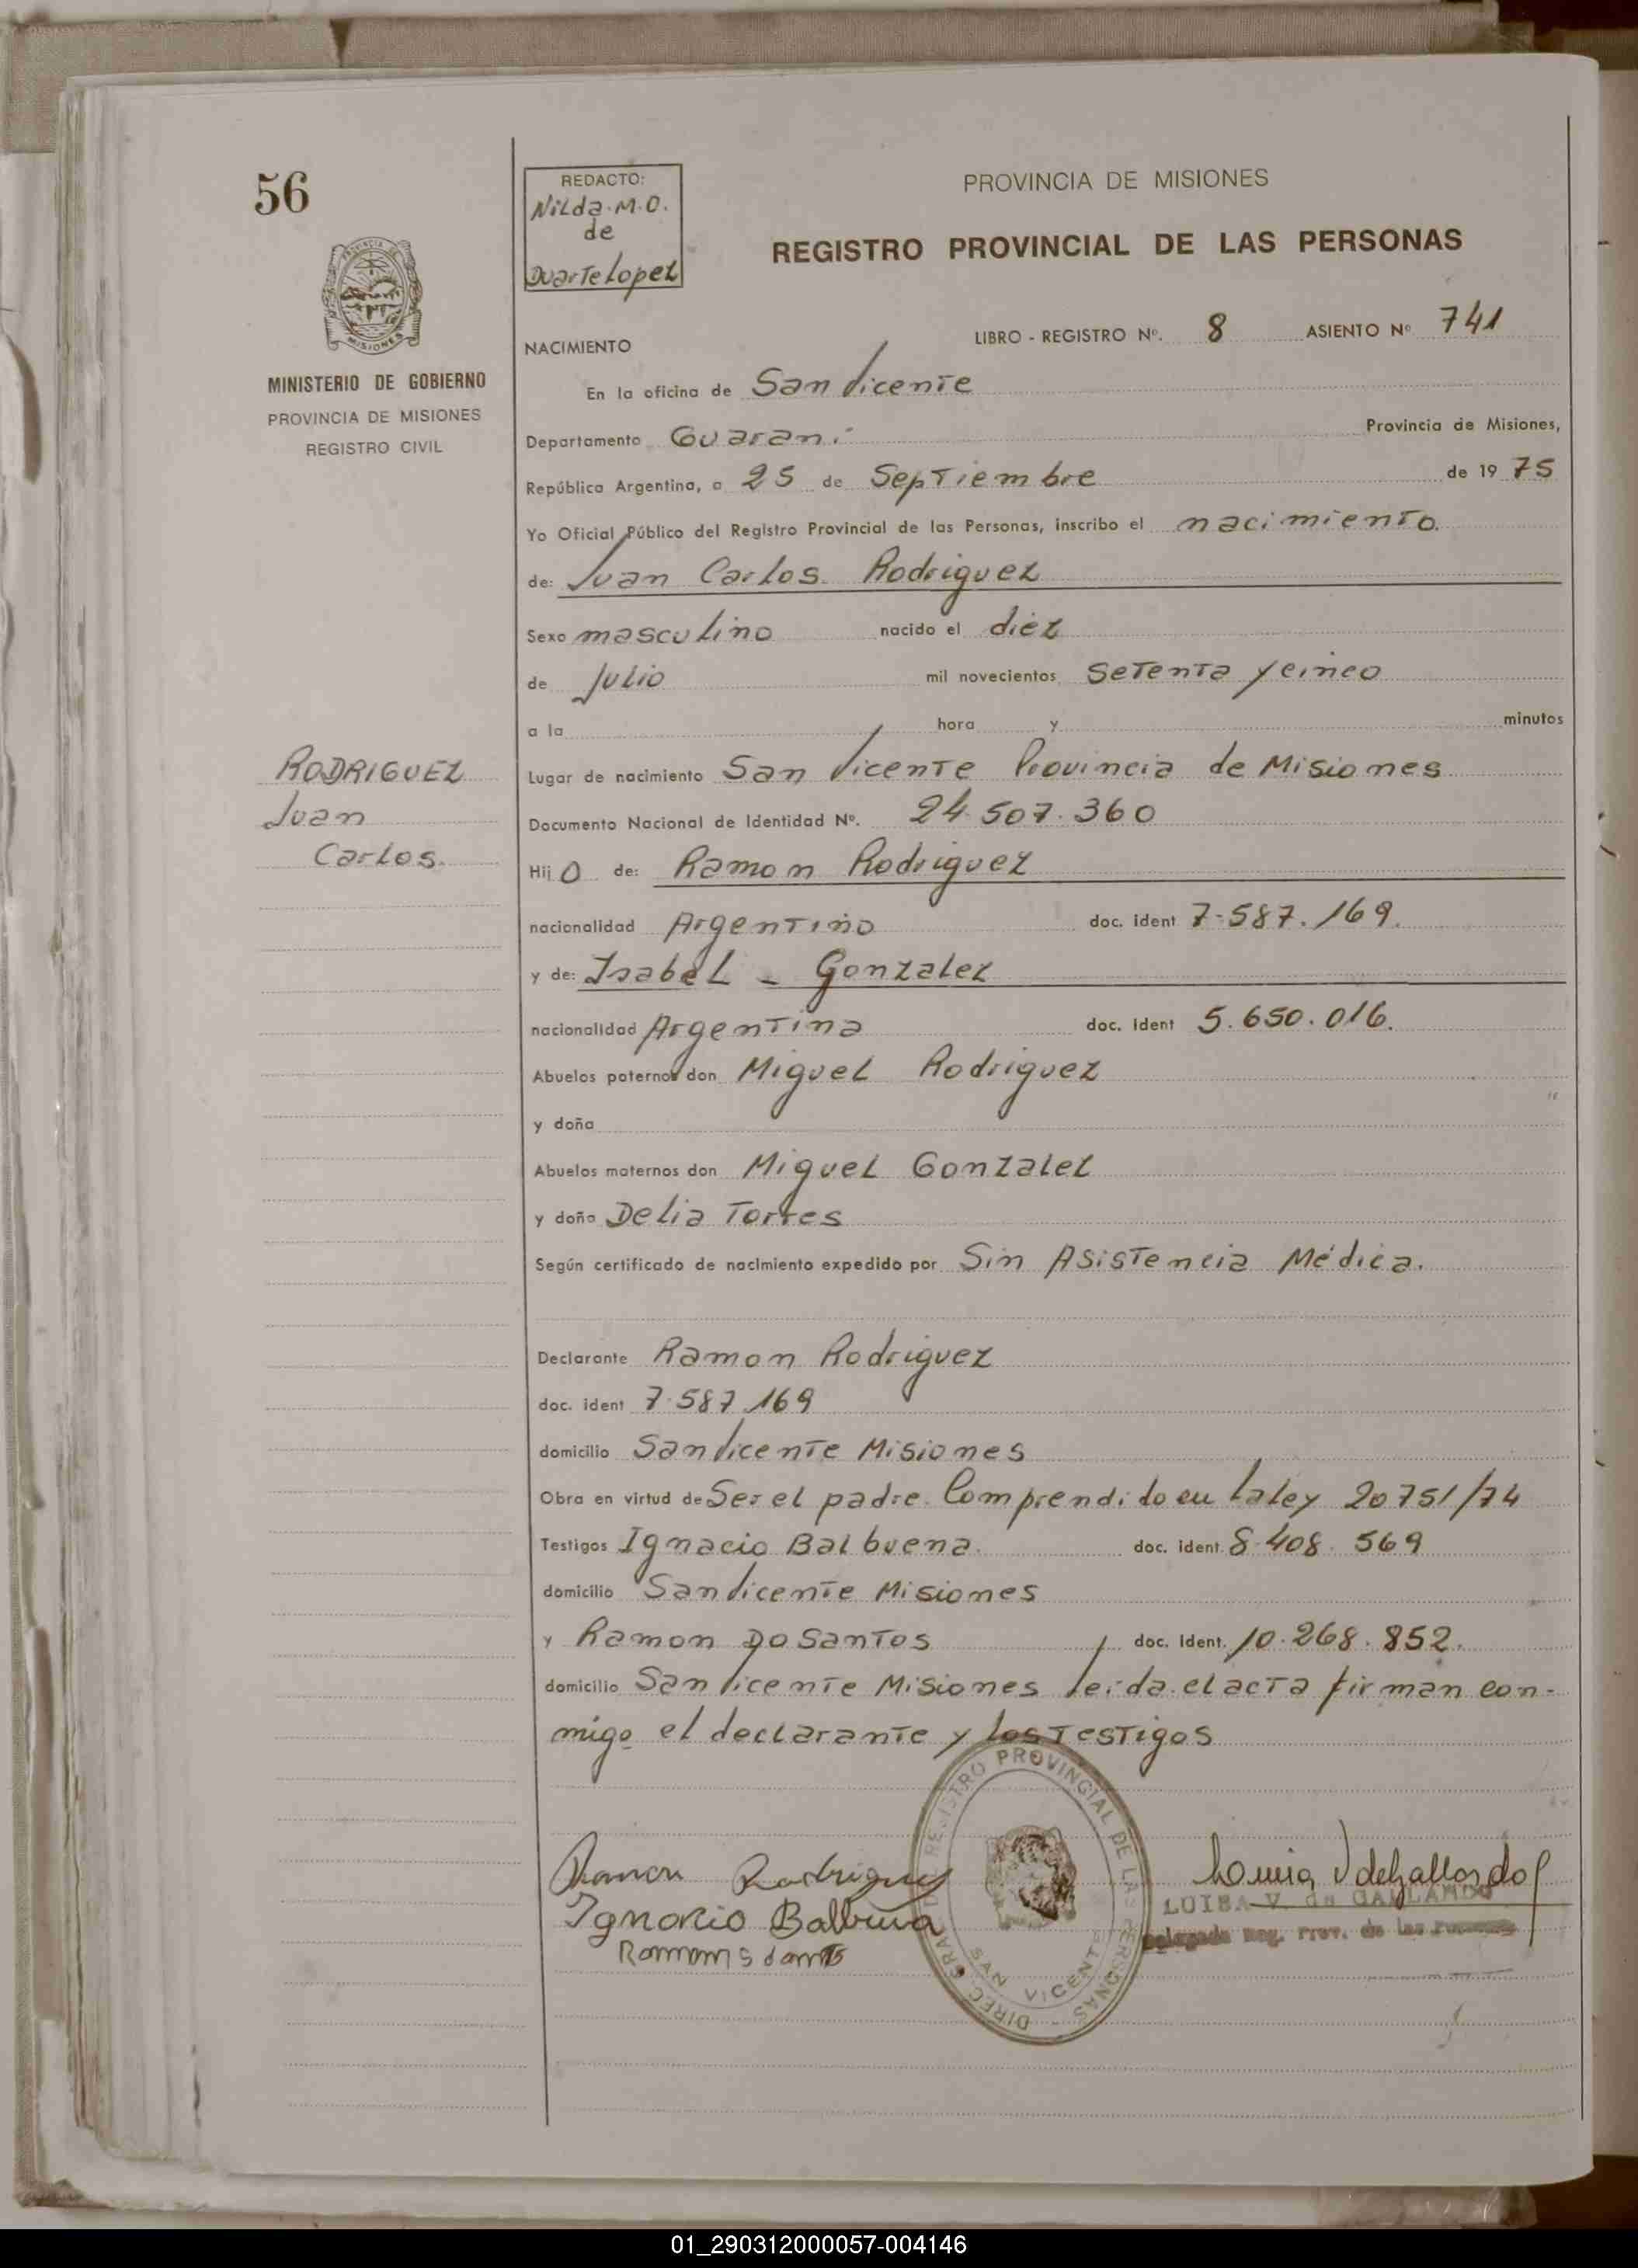 56
REDACTO:
Nilda M.O.
de
Duarte Lopez
PROVINCIA DE MISIONES
REGISTRO PROVINCIAL DE LAS PERSONAS
PROVINCIA DE
MISIONES
MINISTERIO DE GOBIERNO
PROVINCIA DE MISIONES
REGISTRO CIVIL
NACIMIENTO
LIBRO - REGISTRO Nº. 8 ASIENTO Nº 741
En la oficina de San Vicente
Departamento Guarani Provincia de Misiones,
República Argentina, a 25 de Septiembre de 1975
Yo Oficial Público del Registro Provincial de las Personas, inscribo el nacimiento.
de: Juan Carlos Rodriguez
Sexo masculino nacido el diez
de Julio mil novecientos setenta y cinco
a la hora y minutos
RODRIGUEZ
Juan
Carlos.
Lugar de nacimiento San Vicente Provincia de Misiones
Documento Nacional de Identidad Nº. 24.507.360
Hijo de: Ramon Rodriguez
nacionalidad Argentino doc. ident 7.587.169.
y de: Isabel - Gonzalez
nacionalidad Argentina doc. ident 5.650.016.
Abuelos paternos don Miguel Rodriguez
y doña
Abuelos maternos don Miguel Gonzalez
y doña Delia Torres
Según certificado de nacimiento expedido por Sin Asistencia Médica.
Declarante Ramon Rodriguez
doc. ident 7.587.169
domicilio San Vicente Misiones
Obra en virtud de Ser el padre. Comprendido en la ley 20751/74
Testigos Ignacio Balbuena. doc. ident. 8.408.569
domicilio San Vicente Misiones
y Ramon Do Santos doc. Ident. 10.268.852.
domicilio San Vicente Misiones leida el acta firman con-
migo el declarante y los testigos
DIREC. GRAL. DE REGISTRO PROVINCIAL DE LAS PERSONAS -
SAN VICENTE
Ramon Rodriguez
Ignacio Balbuena
Luisa V de Gallardo
LUISA V. de GALLARDO
Delegada Reg. Prov. de las Personas
01_290312000057-004146